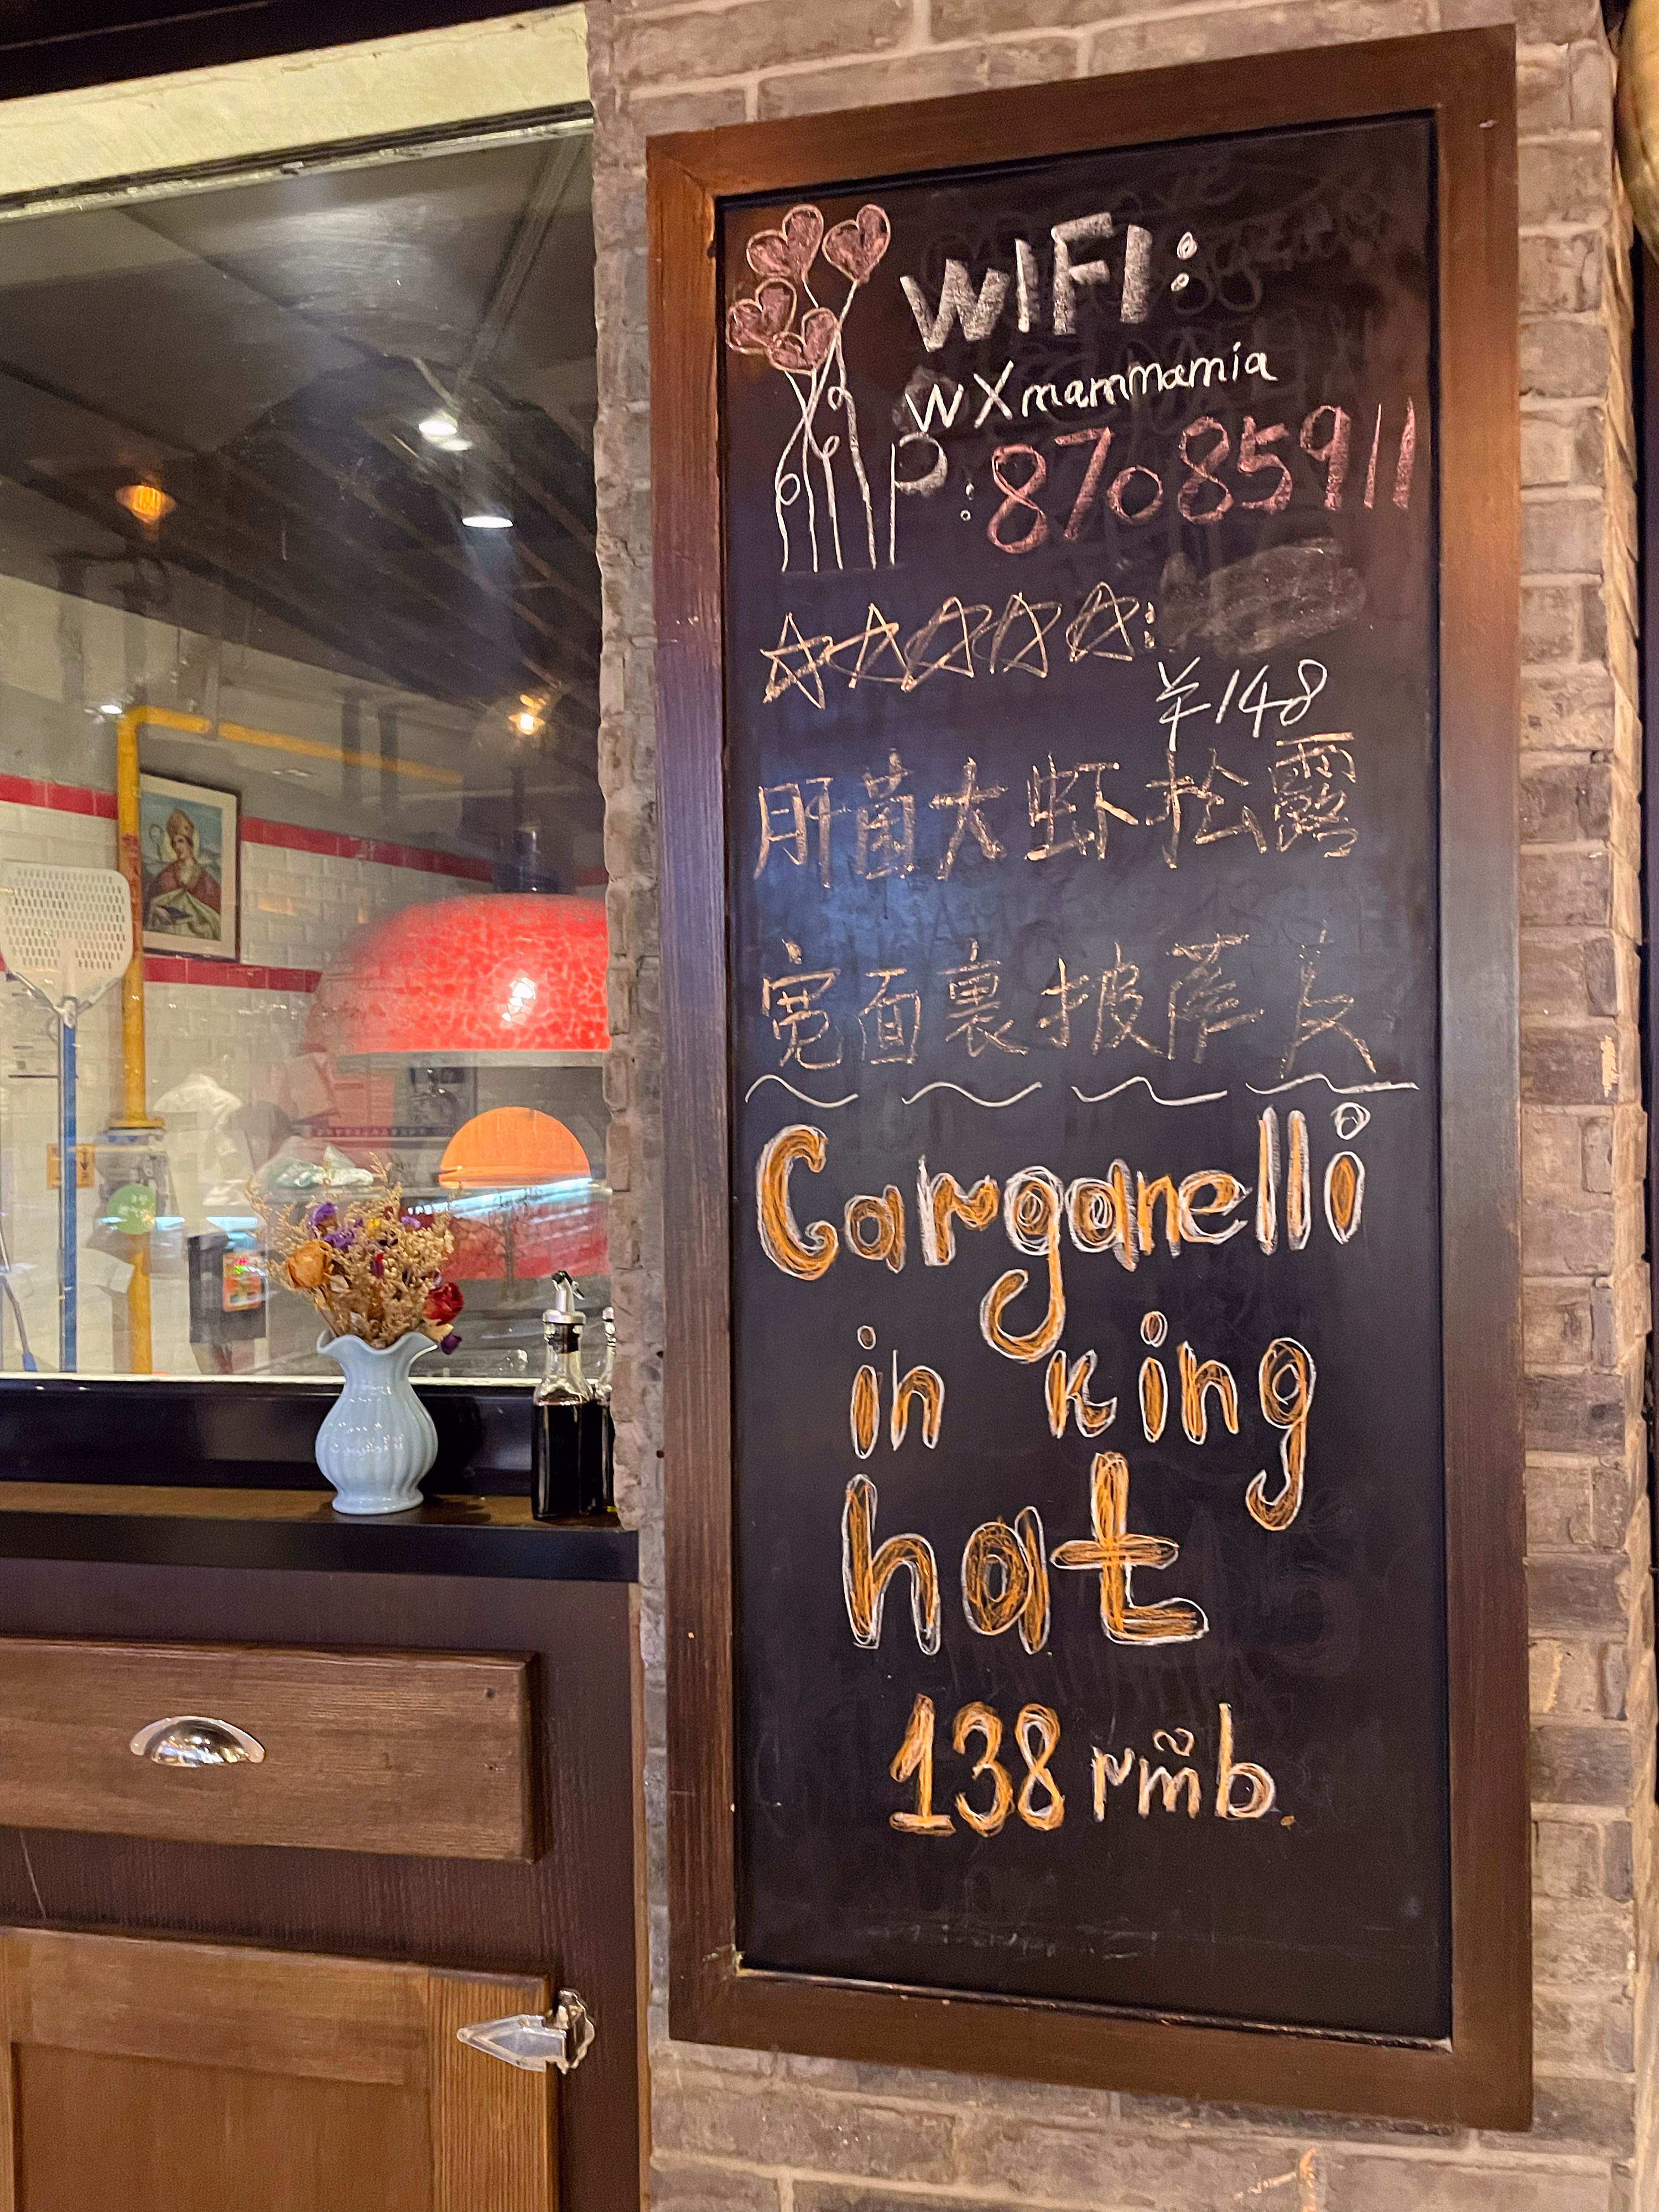 WIFI:
WXmammamia
P:87085911
¥148
肝菌大虾松露
宽面裹披萨皮
Carganelli
in king
hat
138 rmb.